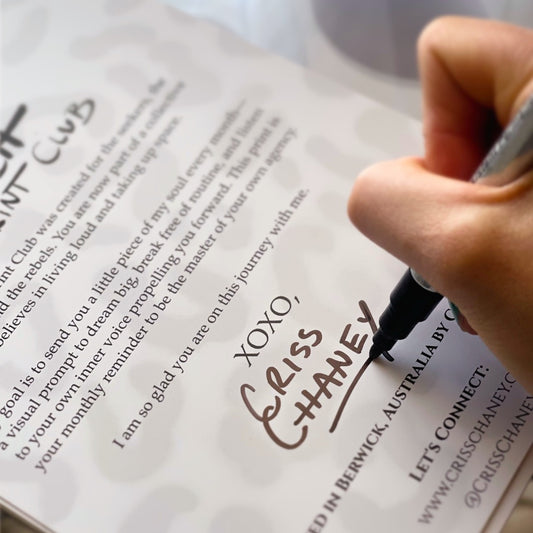 INT CLUB
int Club was created for the seekers, the
d the rebels. You are now part of a collective
believes in living loud and taking up space.
goal is to send you a little piece of my soul every month—
a visual prompt to dream big, break free of routine, and listen
to your own inner voice propelling you forward. This print is
your monthly reminder to be the master of your own agency.
I am so glad you are on this journey with me.
XOXO,
CRISS
CHANEY
ed in Berwick, Australia by C
Let's Connect:
www.CrissChaney.c
@CrissChaney